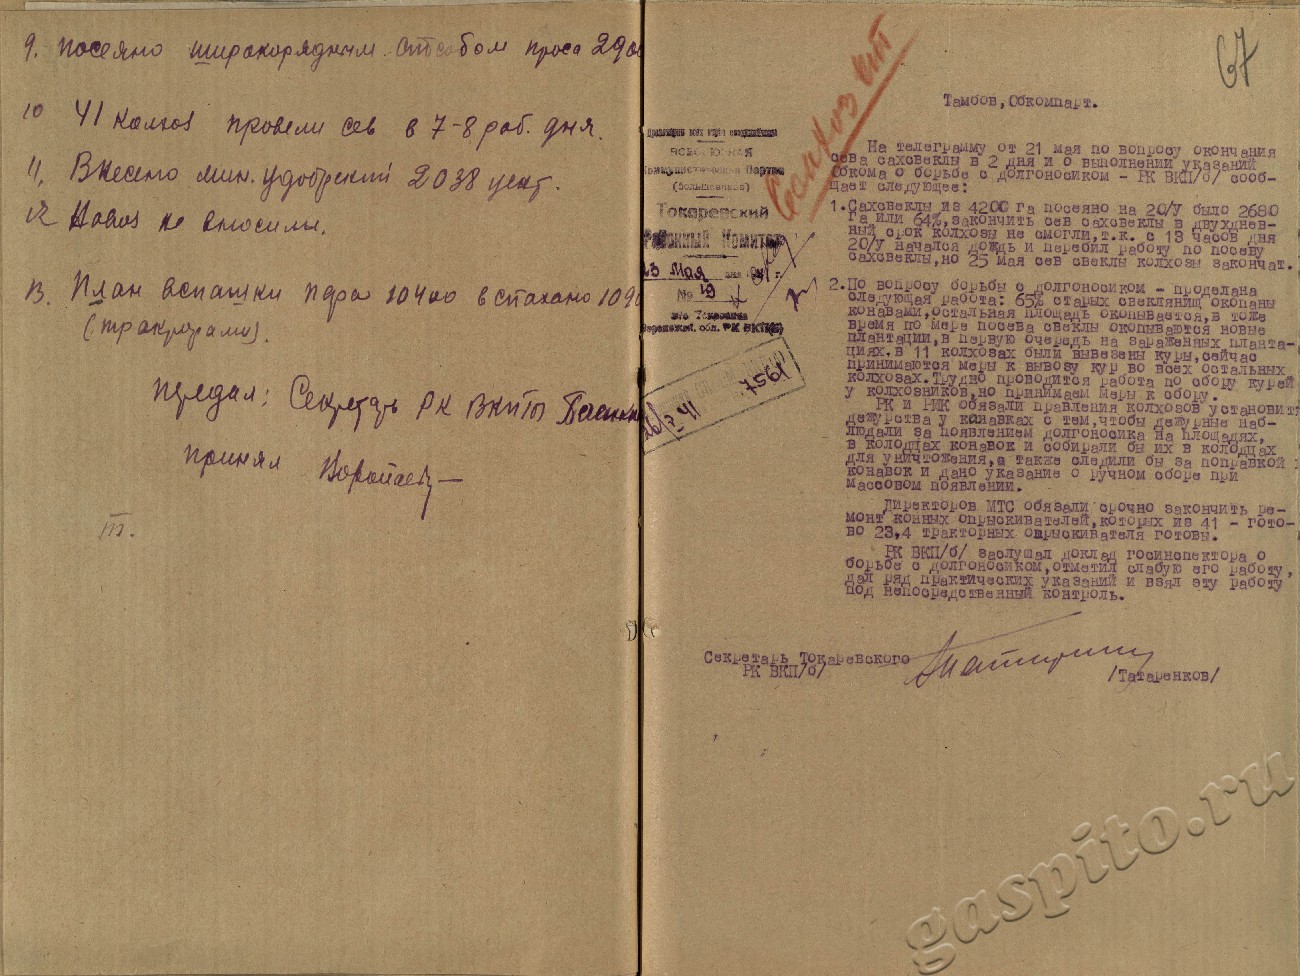 9. посеяно широкорядным способом проса 290
10 41 колхоз провели сев в 7-8 раб. дня.
11. Внесено мин. удобрений 2038 цент.
12 Навоз не вносили.
13. План вспашки пара 10400 вспахано 109
(тракторами).
передал: Секретарь РК ВКП(б)
принял
67
Совхоз
Тамбов, Обкомпарт.
Пролетарии всех стран соединяйтесь
ВСЕСОЮЗНАЯ
Коммунистическая Партия
(большевиков)
Токаревский
Районный Комитет
23 Мая 1941 г.
№ 19
РК ВКП(б)
1957
26/V 41
На телеграмму от 21 мая по вопросу окончания
сева сахсвеклы в 2 дня и о выполнении указаний
Обкома о борьбе с долгоносиком - РК ВКП/б/ сооб-
щает следующее:
1.Сахсвеклы из 4200 га посеяно на 20/У было 2680
га или 64%,закончить сев сахсвеклы в двухднев-
ный срок колхозы не смогли,т.к. с 13 часов дня
20/У начался дождь и перебил работу по посеву
сахсвеклы,но 25 мая сев свеклы колхозы закончат.
2.По вопросу борьбы с долгоносиком - проделана
следующая работа: 65% старых свеклянищ окопаны
конавами,остальная площадь окопывается,в тоже
время по мере посева свеклы окопываются новые
плантации,в первую очередь на зараженных планта-
циях.в 11 колхозах были вывезены куры,сейчас
принимаются меры к вывозу кур во всех остальных
колхозах.Трудно проводится работа по сбору курей
у колхозников,но принимаем меры к сбору.
РК и РИК обязали правления колхозов установить
дежурства у канавках с тем,чтобы дежурные наб-
людали за появлением долгоносика на площадях,
в колодцах конавок и собирали бы их в колодцах
для уничтожения,а также следили бы за поправкой
конавок и дано указание о ручном сборе при
массовом появлении.
Директоров МТС обязали срочно закончить ре-
монт конных опрыскивателей,которых из 41 - гото-
во 23,4 тракторных опрыскивателя готовы.
РК ВКП/б/ заслушал доклад госинспектора о
борьбе с долгоносиком,отметил слабую его работу,
дал ряд практических указаний и взял эту работу
под непосредственный контроль.
Секретарь Токаревского
РК ВКП/б/
/Татаренков/
gaspito.ru